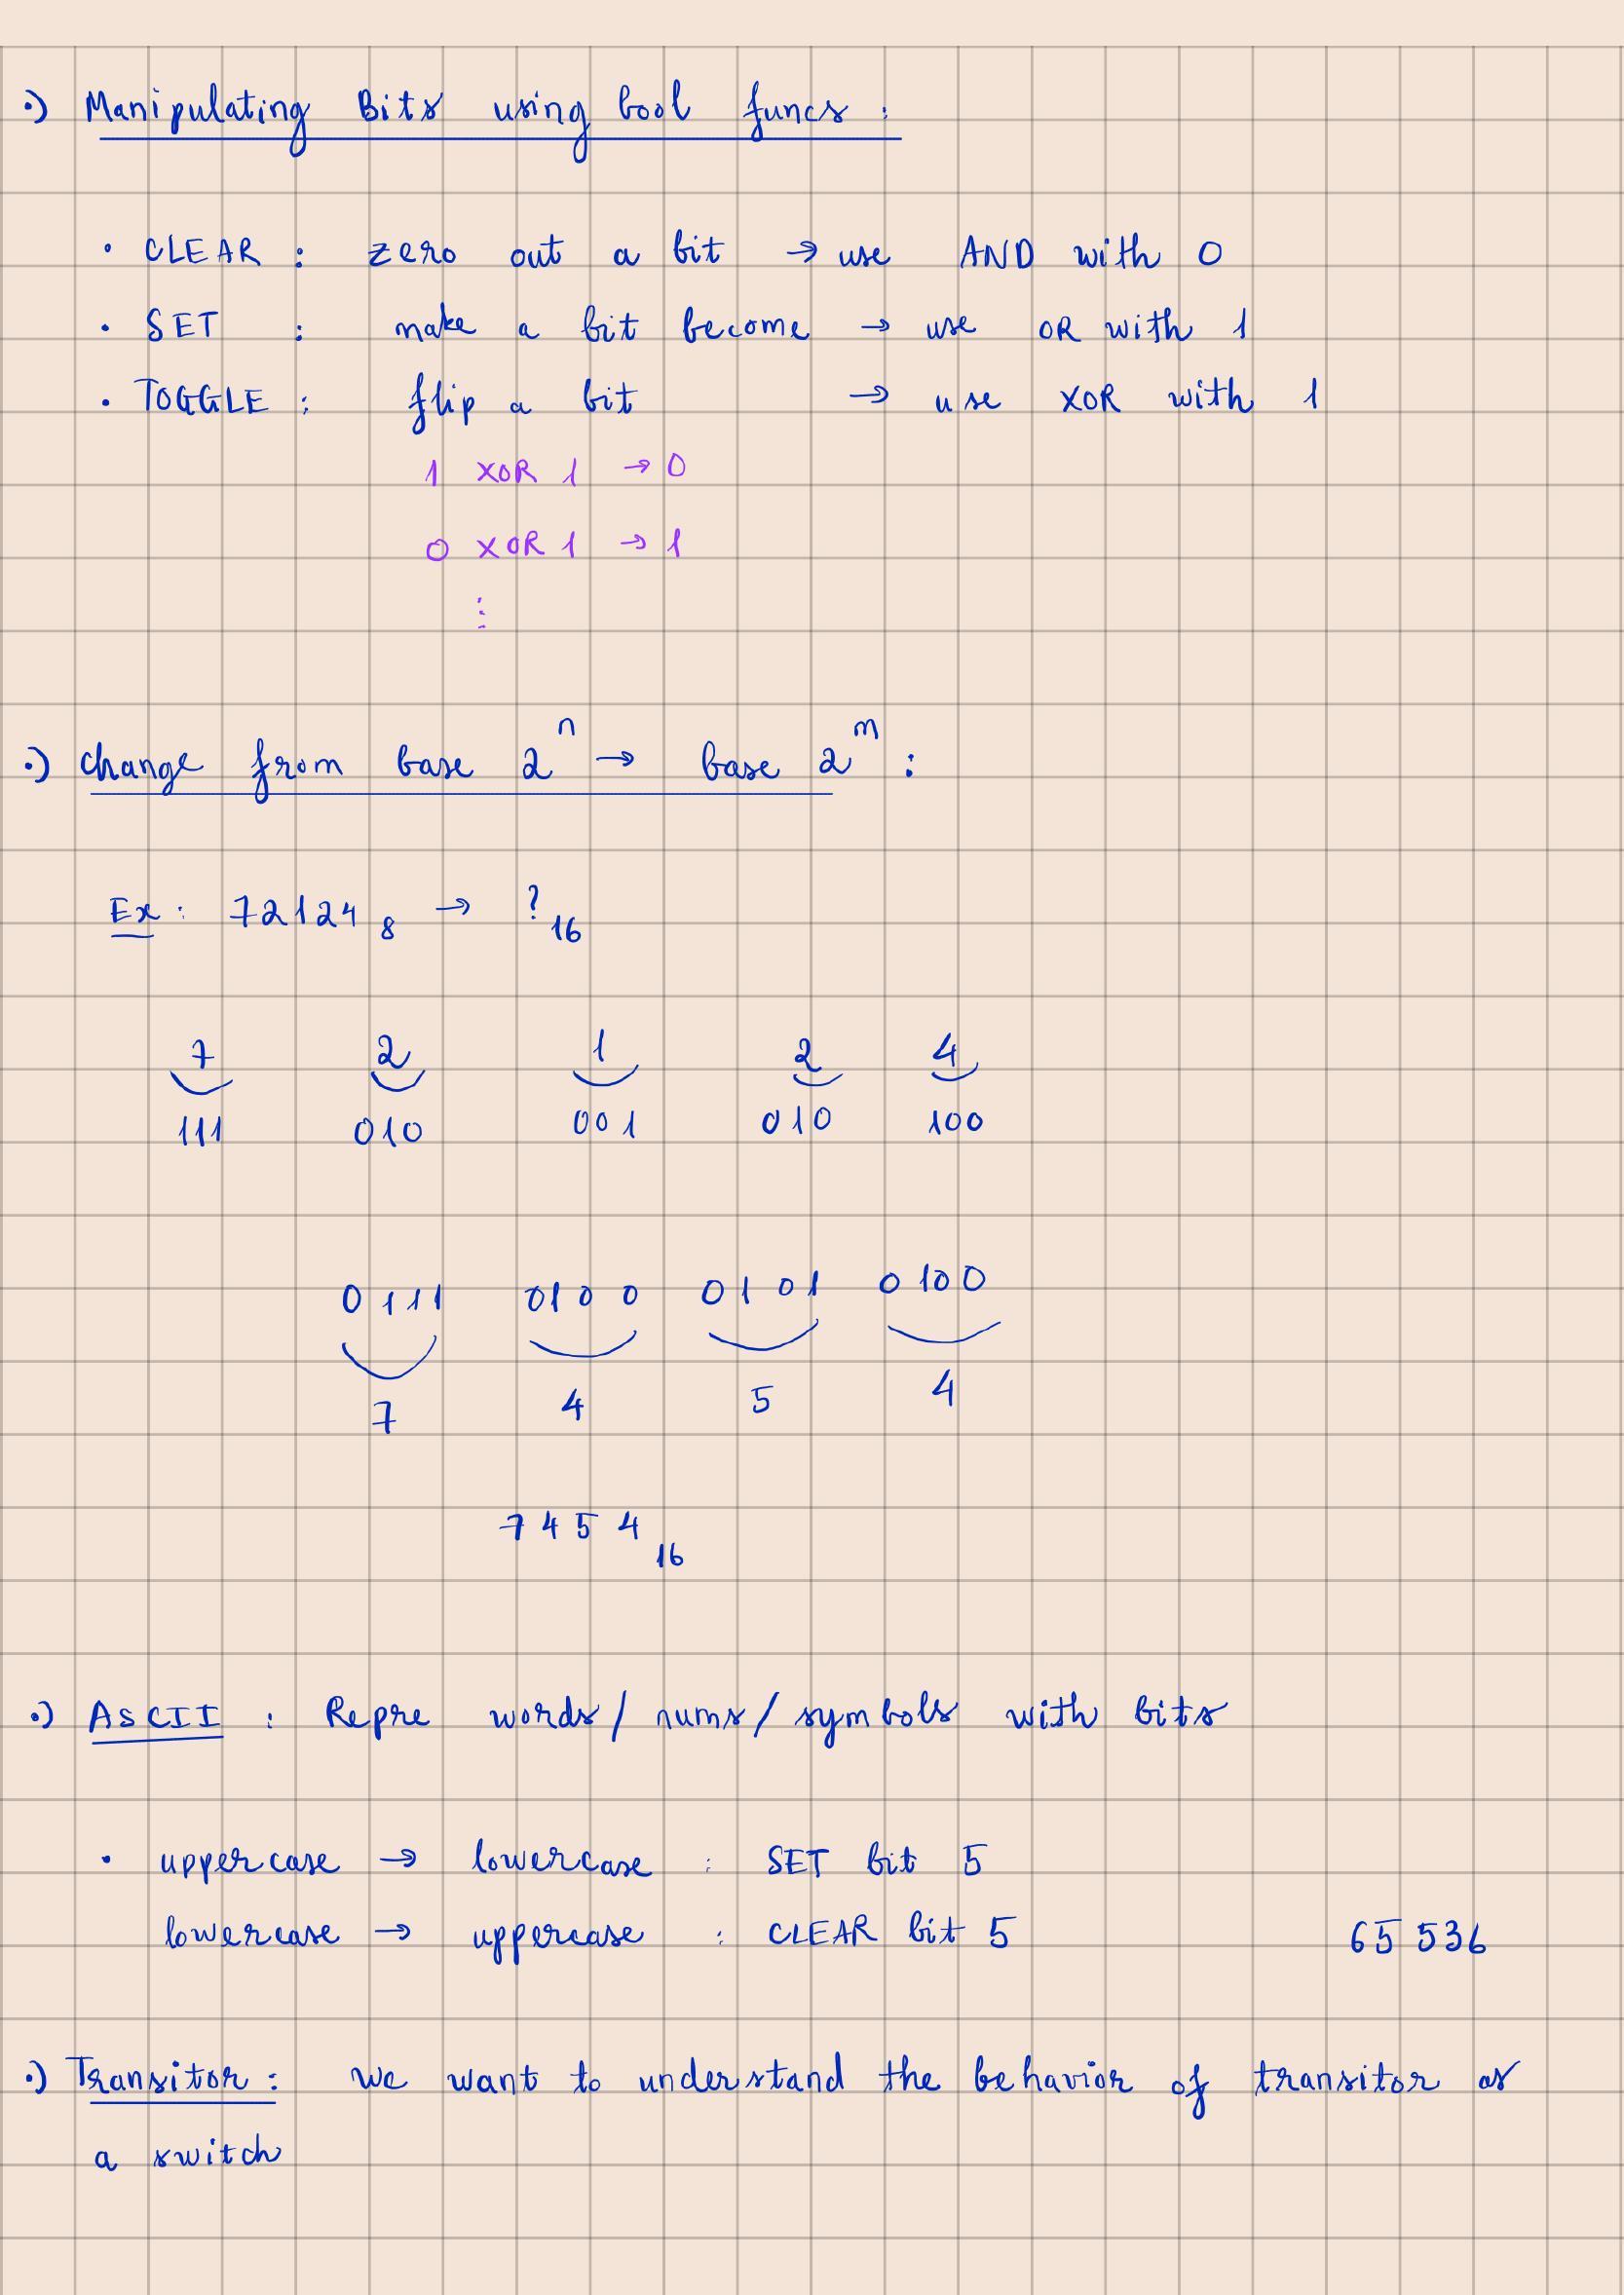 •) Manipulating Bits using bool funcs :
• CLEAR : zero out a bit → use AND with 0
• SET : make a bit become → use OR with 1
• TOGGLE : flip a bit → use XOR with 1
1 XOR 1 → 0
0 XOR 1 → 1
⋮
•) Change from base 2^n → base 2^m :
Ex : 72124 8 → ? 16
7 2 1 2 4
111 010 001 010 100
0111 0100 0101 0100
7 4 5 4
7454 16
•) ASCII : Repre words/ nums/ symbols with bits
• uppercase → lowercase : SET bit 5
lowercase → uppercase : CLEAR bit 5 65 536
•) Transitor : we want to understand the behavior of transitor as
a switch